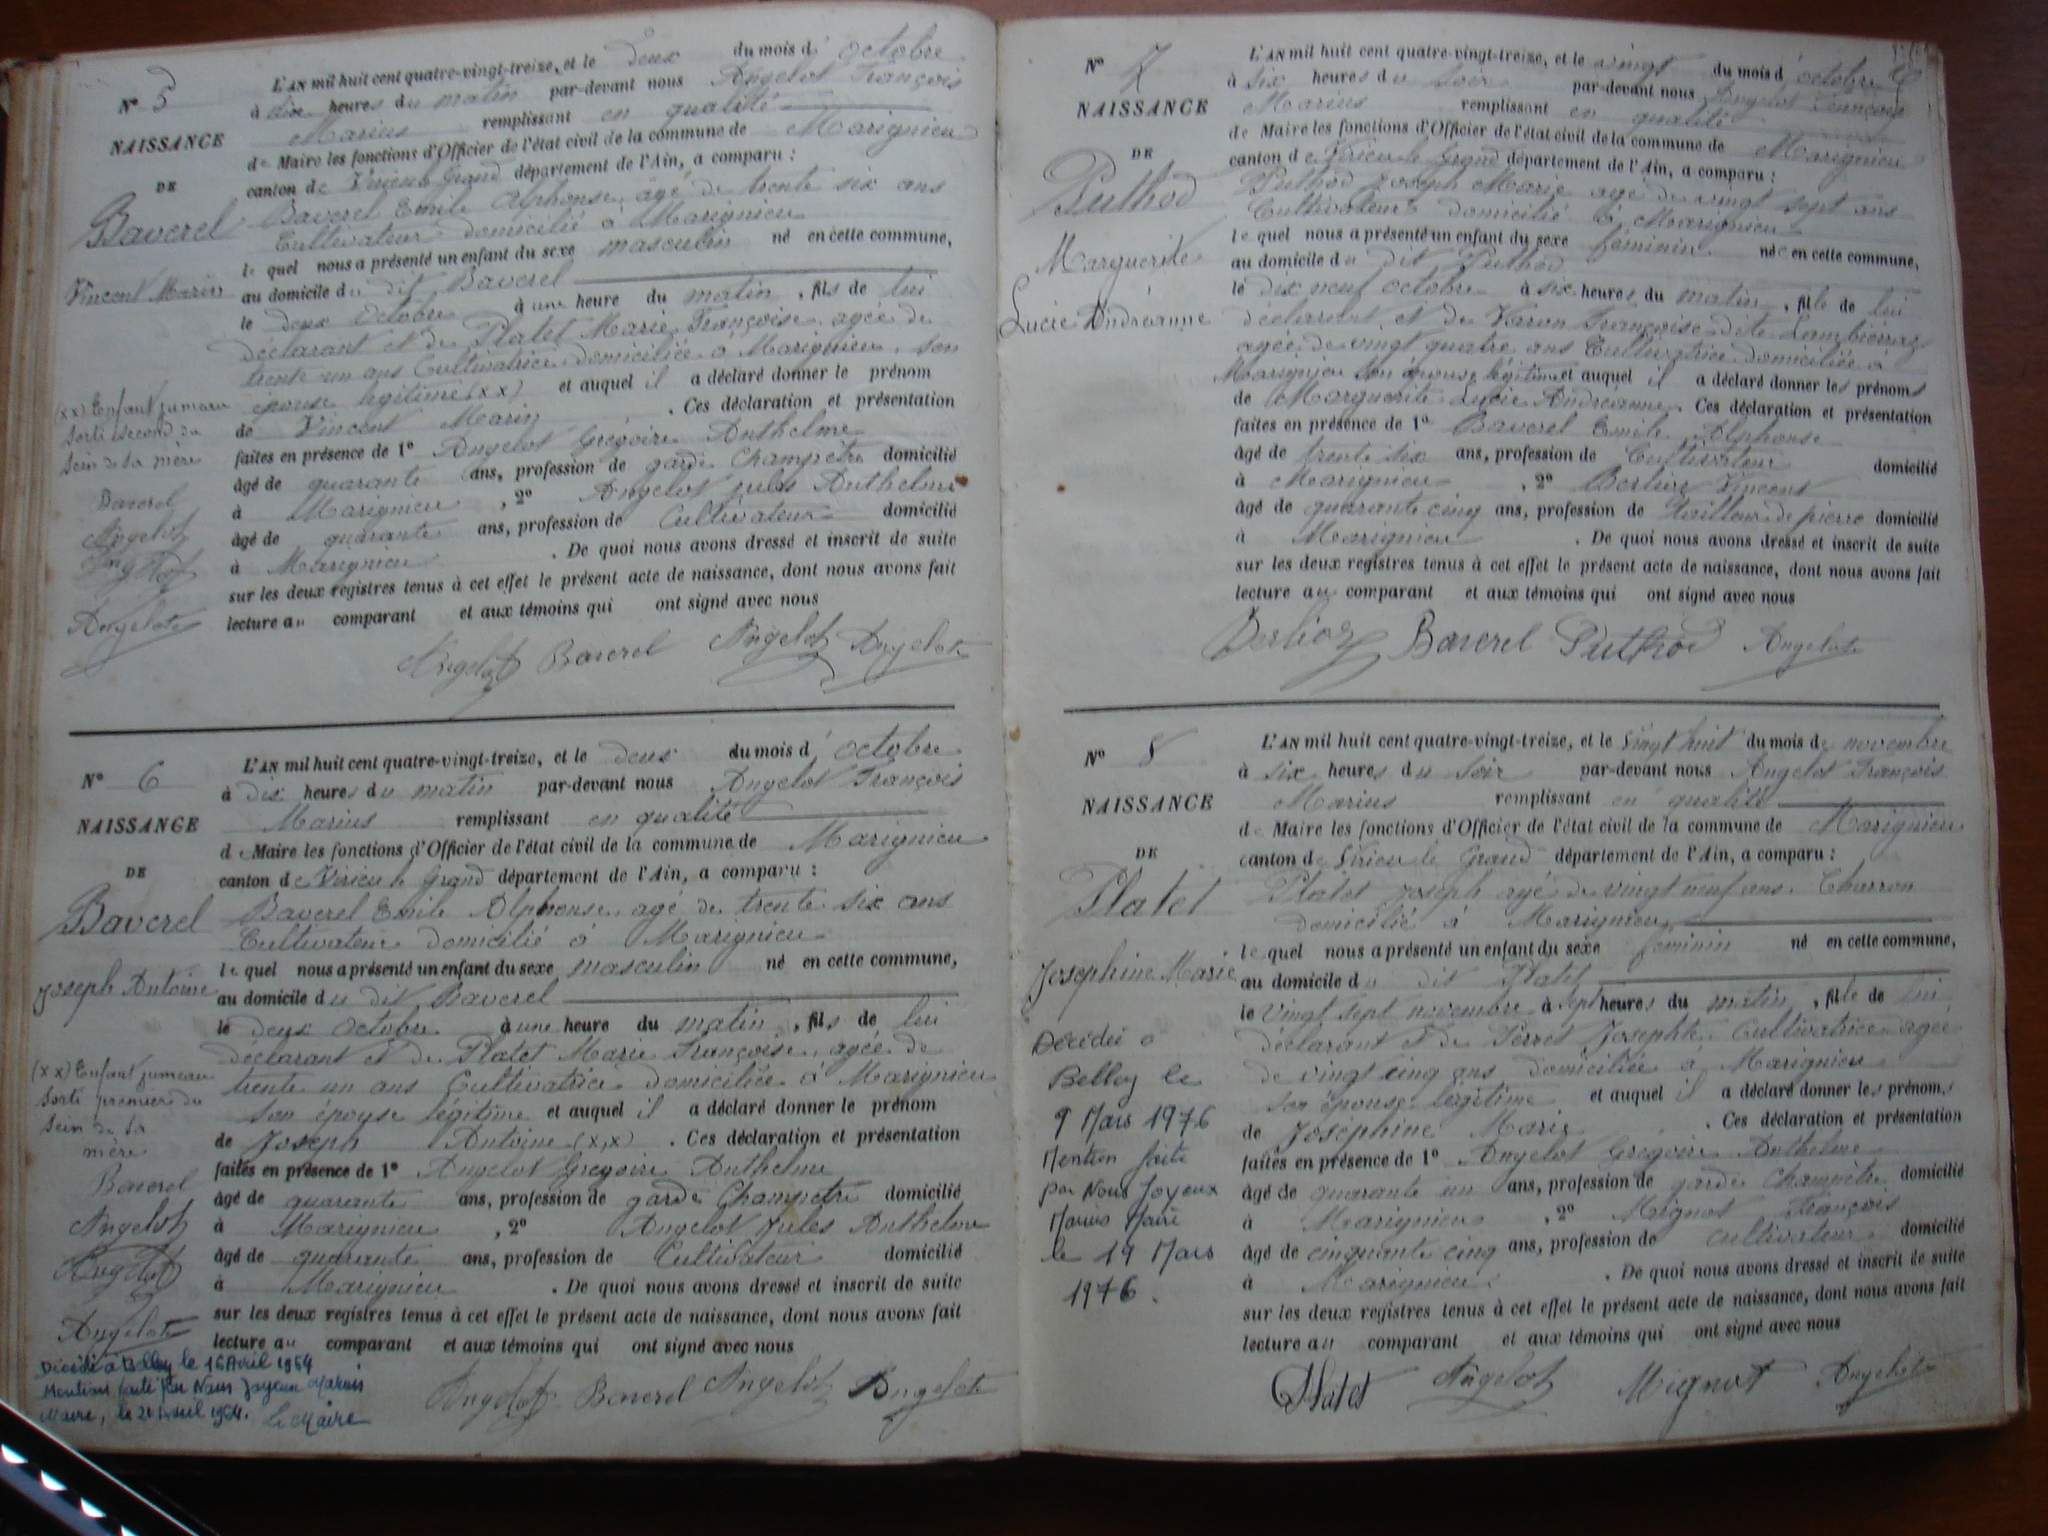 N° 5
NAISSANCE
DE
Baverel
Vincent Marin
(xx) Enfant jumeau
sorti second du
sein de sa mère
Baverel
Angelot
Angelot
Angelot
L'AN mil huit cent quatre-vingt-treize, et le deux du mois d'octobre
à dix heures du matin par-devant nous Angelot François
Marius remplissant en qualité
de Maire les fonctions d'Officier de l'état civil de la commune de Marignieu
canton de Virieu le Grand département de l'Ain, a comparu :
Baverel Emile Alphonse, agé de trente six ans
Cultivateur domicilié à Marignieu
le quel nous a présenté un enfant du sexe masculin né en cette commune,
au domicile du dit Baverel
le deux Octobre à une heure du matin, fils de lui
déclarant et de Platet Marie Françoise, agée de
trente un ans Cultivatrice domiciliée à Marignieu, son
épouse légitime (xx) et auquel il a déclaré donner le prénom
de Vincent Marin . Ces déclaration et présentation
faites en présence de 1° Angelot Grégoire Anthelme
âgé de quarante ans, profession de garde Champetre domicilié
à Marignieu , 2° Angelot Jules Anthelme
âgé de quarante ans, profession de Cultivateur domicilié
à Marignieu . De quoi nous avons dressé et inscrit de suite
sur les deux registres tenus à cet effet le présent acte de naissance, dont nous avons fait
lecture au comparant et aux témoins qui ont signé avec nous
Angelot Baverel Angelot Angelot
N° 6
NAISSANCE
DE
Baverel
Joseph Antoine
(xx) Enfant jumeau
sorti premier du
sein de sa
mère
Baverel
Angelot
Angelot
Angelot
Décédé à Belley le 16 Avril 1964
Mention faite par Nous Joyeux Marius
Maire, le 21 Avril 1964. Le Maire
L'AN mil huit cent quatre-vingt-treize, et le deux du mois d'octobre
à dix heures du matin par-devant nous Angelot François
Marius remplissant en qualité
de Maire les fonctions d'Officier de l'état civil de la commune de Marignieu
canton de Virieu le Grand département de l'Ain, a comparu :
Baverel Emile Alphonse, agé de trente six ans
Cultivateur domicilié à Marignieu
le quel nous a présenté un enfant du sexe masculin né en cette commune,
au domicile du dit Baverel
le deux Octobre à une heure du matin, fils de lui
déclarant et de Platet Marie Françoise, agée de
trente un ans Cultivatrice domiciliée à Marignieu
son épouse légitime et auquel il a déclaré donner le prénom
de Joseph Antoine (x,x) . Ces déclaration et présentation
faites en présence de 1° Angelot Grégoire Anthelme
âgé de quarante ans, profession de garde Champetre domicilié
à Marignieu , 2° Angelot Jules Anthelme
âgé de quarante ans, profession de Cultivateur domicilié
à Marignieu . De quoi nous avons dressé et inscrit de suite
sur les deux registres tenus à cet effet le présent acte de naissance, dont nous avons fait
lecture au comparant et aux témoins qui ont signé avec nous
Angelot Baverel Angelot Angelot
N° 7
NAISSANCE
DE
Puthod
Marguerite
Lucie Andréanne
L'AN mil huit cent quatre-vingt-treize, et le vingt du mois d'octobre
à six heures du soir par-devant nous Angelot François
Marius remplissant en qualité
de Maire les fonctions d'Officier de l'état civil de la commune de Marignieu
canton de Virieu le Grand département de l'Ain, a comparu :
Puthod Joseph Marie agé de vingt sept ans
Cultivateur domicilié à Marignieu
le quel nous a présenté un enfant du sexe féminin née en cette commune,
au domicile du dit Puthod
le dix neuf octobre à six heures du matin, fille de lui
déclarant et de Varon Françoise dite
agée de vingt quatre ans Cultivatrice domiciliée à
Marignieu son épouse légitime et auquel il a déclaré donner les prénoms
de Marguerite Lucie Andréanne. Ces déclaration et présentation
faites en présence de 1° Baverel Emile Alphonse
âgé de trente six ans, profession de Cultivateur domicilié
à Marignieu , 2° Berlioz Vincent
âgé de quarante cinq ans, profession de tailleur de pierre domicilié
à Marignieu . De quoi nous avons dressé et inscrit de suite
sur les deux registres tenus à cet effet le présent acte de naissance, dont nous avons fait
lecture au comparant et aux témoins qui ont signé avec nous
Berlioz Baverel Puthod Angelot
N° 8
NAISSANCE
DE
Platet
Josephine Marie
Décédée à
Belley le
9 Mars 1976
Mention faite
par Nous Joyeux
Marius Maire
le 19 Mars
1976.
L'AN mil huit cent quatre-vingt-treize, et le vingt huit du mois de novembre
à six heures du soir par-devant nous Angelot François
Marius remplissant en qualité
de Maire les fonctions d'Officier de l'état civil de la commune de Marignieu
canton de Virieu le Grand département de l'Ain, a comparu :
Platet Joseph agé de vingt neuf ans Charron
domicilié à Marignieu
le quel nous a présenté un enfant du sexe féminin né en cette commune,
au domicile du dit Platet
le vingt sept novembre à sept heures du matin, fille de lui
déclarant et de Perret Josephte Cultivatrice agée
de vingt cinq ans domiciliée à Marignieu
son épouse légitime et auquel il a déclaré donner les prénoms
de Joséphine Marie . Ces déclaration et présentation
faites en présence de 1° Angelot Grégoire Anthelme
âgé de quarante un ans, profession de garde Champêtre domicilié
à Marignieu , 2° Mignot François
âgé de cinquante cinq ans, profession de cultivateur domicilié
à Marignieu . De quoi nous avons dressé et inscrit de suite
sur les deux registres tenus à cet effet le présent acte de naissance, dont nous avons fait
lecture au comparant et aux témoins qui ont signé avec nous
Platet Angelot Mignot Angelot